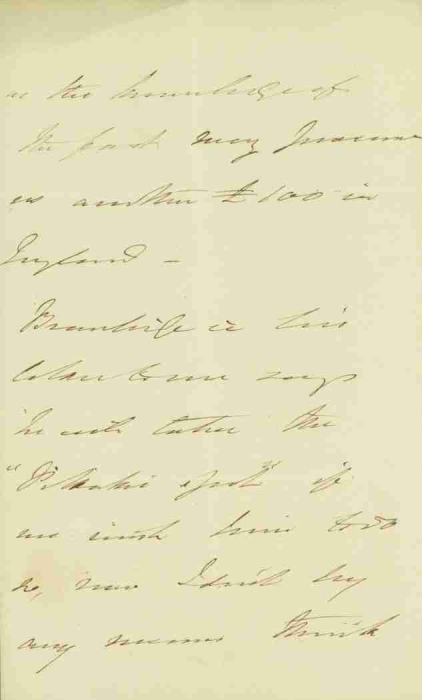 as the knowledge of
the fact may procure
us another £100 in
England —
in his
letter to me says
he will take the
" if
we wish him to do
so, now I don't by
any means think